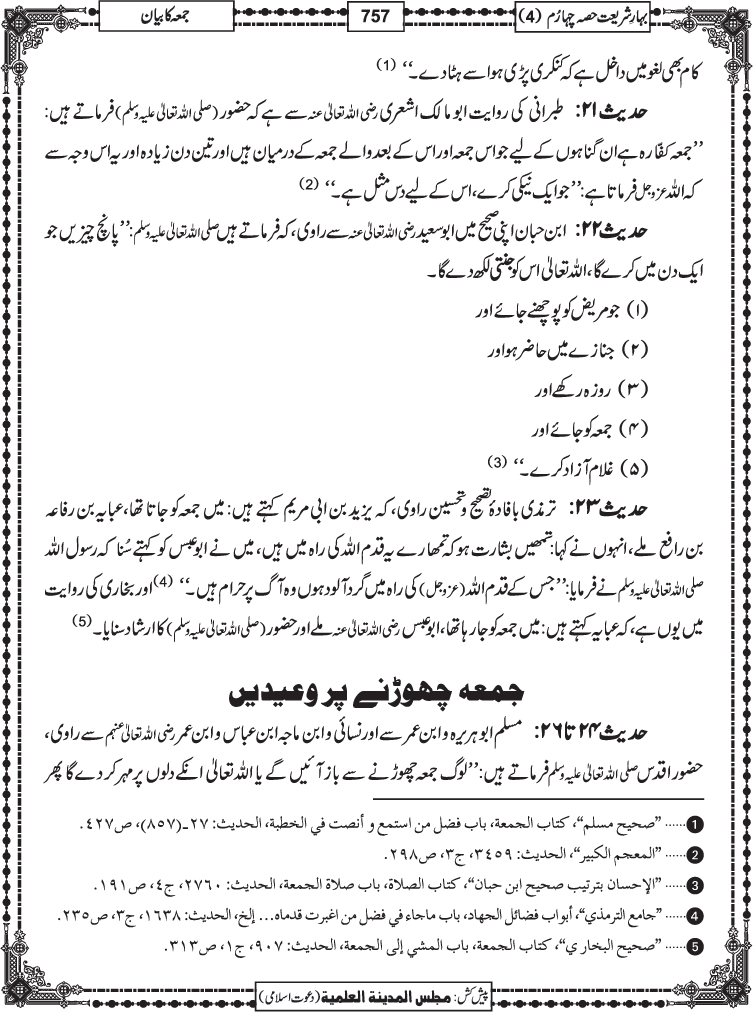 بہارِ شریعت حصہ چہارم (4)
757
جمعہ کا بیان
کام بھی لغو میں داخل ہے کہ کنکری پڑی ہو اسے ہٹا دے۔‘‘ (1)
حدیث ۲۱: طبرانی کی روایت ابو مالک اشعری رضی اللہ تعالیٰ عنہ سے ہے کہ حضور (صلی اللہ تعالیٰ علیہ وسلم) فرماتے ہیں:
’’جمعہ کفّارہ ہے ان گناہوں کے لیے جو اس جمعہ اور اس کے بعد والے جمعہ کے درمیان ہیں اور تین دن زیادہ اور یہ اس وجہ سے
کہ اللہ عزوجل فرماتا ہے: ’’جو ایک نیکی کرے، اس کے لیے دس مثل ہے۔‘‘ (2)
حدیث ۲۲: ابن حبان اپنی صحیح میں ابو سعید رضی اللہ تعالیٰ عنہ سے راوی، کہ فرماتے ہیں صلی اللہ تعالیٰ علیہ وسلم: ’’پانچ چیزیں جو
ایک دن میں کرے گا، اللہ تعالیٰ اس کو جنتی لکھ دے گا۔
(۱) جو مریض کو پوچھنے جائے اور
(۲) جنازے میں حاضر ہو اور
(۳) روزہ رکھے اور
(۴) جمعہ کو جائے اور
(۵) غلام آزاد کرے۔‘‘ (3)
حدیث ۲۳: ترمذی بافادۂ تصحیح و تحسین راوی، کہ یزید بن ابی مریم کہتے ہیں: میں جمعہ کو جاتا تھا، عبایہ بن رفاعہ
بن رافع ملے، انہوں نے کہا: تمھیں بشارت ہو کہ تمھارے یہ قدم اللہ کی راہ میں ہیں، میں نے ابو عبس کو کہتے سُنا کہ رسول اللہ
صلی اللہ تعالیٰ علیہ وسلم نے فرمایا: ’’جس کے قدم اللہ (عزوجل) کی راہ میں گرد آلود ہوں وہ آگ پر حرام ہیں۔‘‘ (4) اور بخاری کی روایت
میں یوں ہے، کہ عبایہ کہتے ہیں: میں جمعہ کو جا رہا تھا، ابو عبس رضی اللہ تعالیٰ عنہ ملے اور حضور (صلی اللہ تعالیٰ علیہ وسلم) کا ارشاد سنایا۔ (5)
جمعہ چھوڑنے پر وعیدیں
حدیث ۲۴ تا ۲۶: مسلم ابوہریرہ و ابن عمر سے اور نسائی و ابن ماجہ ابن عباس و ابن عمر رضی اللہ تعالیٰ عنہم سے راوی،
حضور اقدس صلی اللہ تعالیٰ علیہ وسلم فرماتے ہیں: ’’لوگ جمعہ چھوڑنے سے باز آئیں گے یا اللہ تعالیٰ انکے دلوں پر مہر کر دے گا پھر
1 ...... ”صحیح مسلم“، کتاب الجمعة، باب فضل من استمع و أنصت في الخطبة، الحديث: ٢٧ـ(٨٥٧)، ص٤٢٧.
2 ...... ”المعجم الكبير“، الحديث: ٣٤٥٩، ج٣، ص٢٩٨.
3 ...... ”الإحسان بترتيب صحيح ابن حبان“، كتاب الصلاة، باب صلاة الجمعة، الحديث: ٢٧٦٠، ج٤، ص١٩١.
4 ...... ”جامع الترمذي“، أبواب فضائل الجهاد، باب ماجاء في فضل من اغبرت قدماه... إلخ، الحديث: ١٦٣٨، ج٣، ص٢٣٥.
5 ...... ”صحيح البخاري“، كتاب الجمعة، باب المشي إلى الجمعة، الحديث: ٩٠٧، ج١، ص٣١٣.
پیش کش: مجلس المدينة العلمية (دعوت اسلامی)